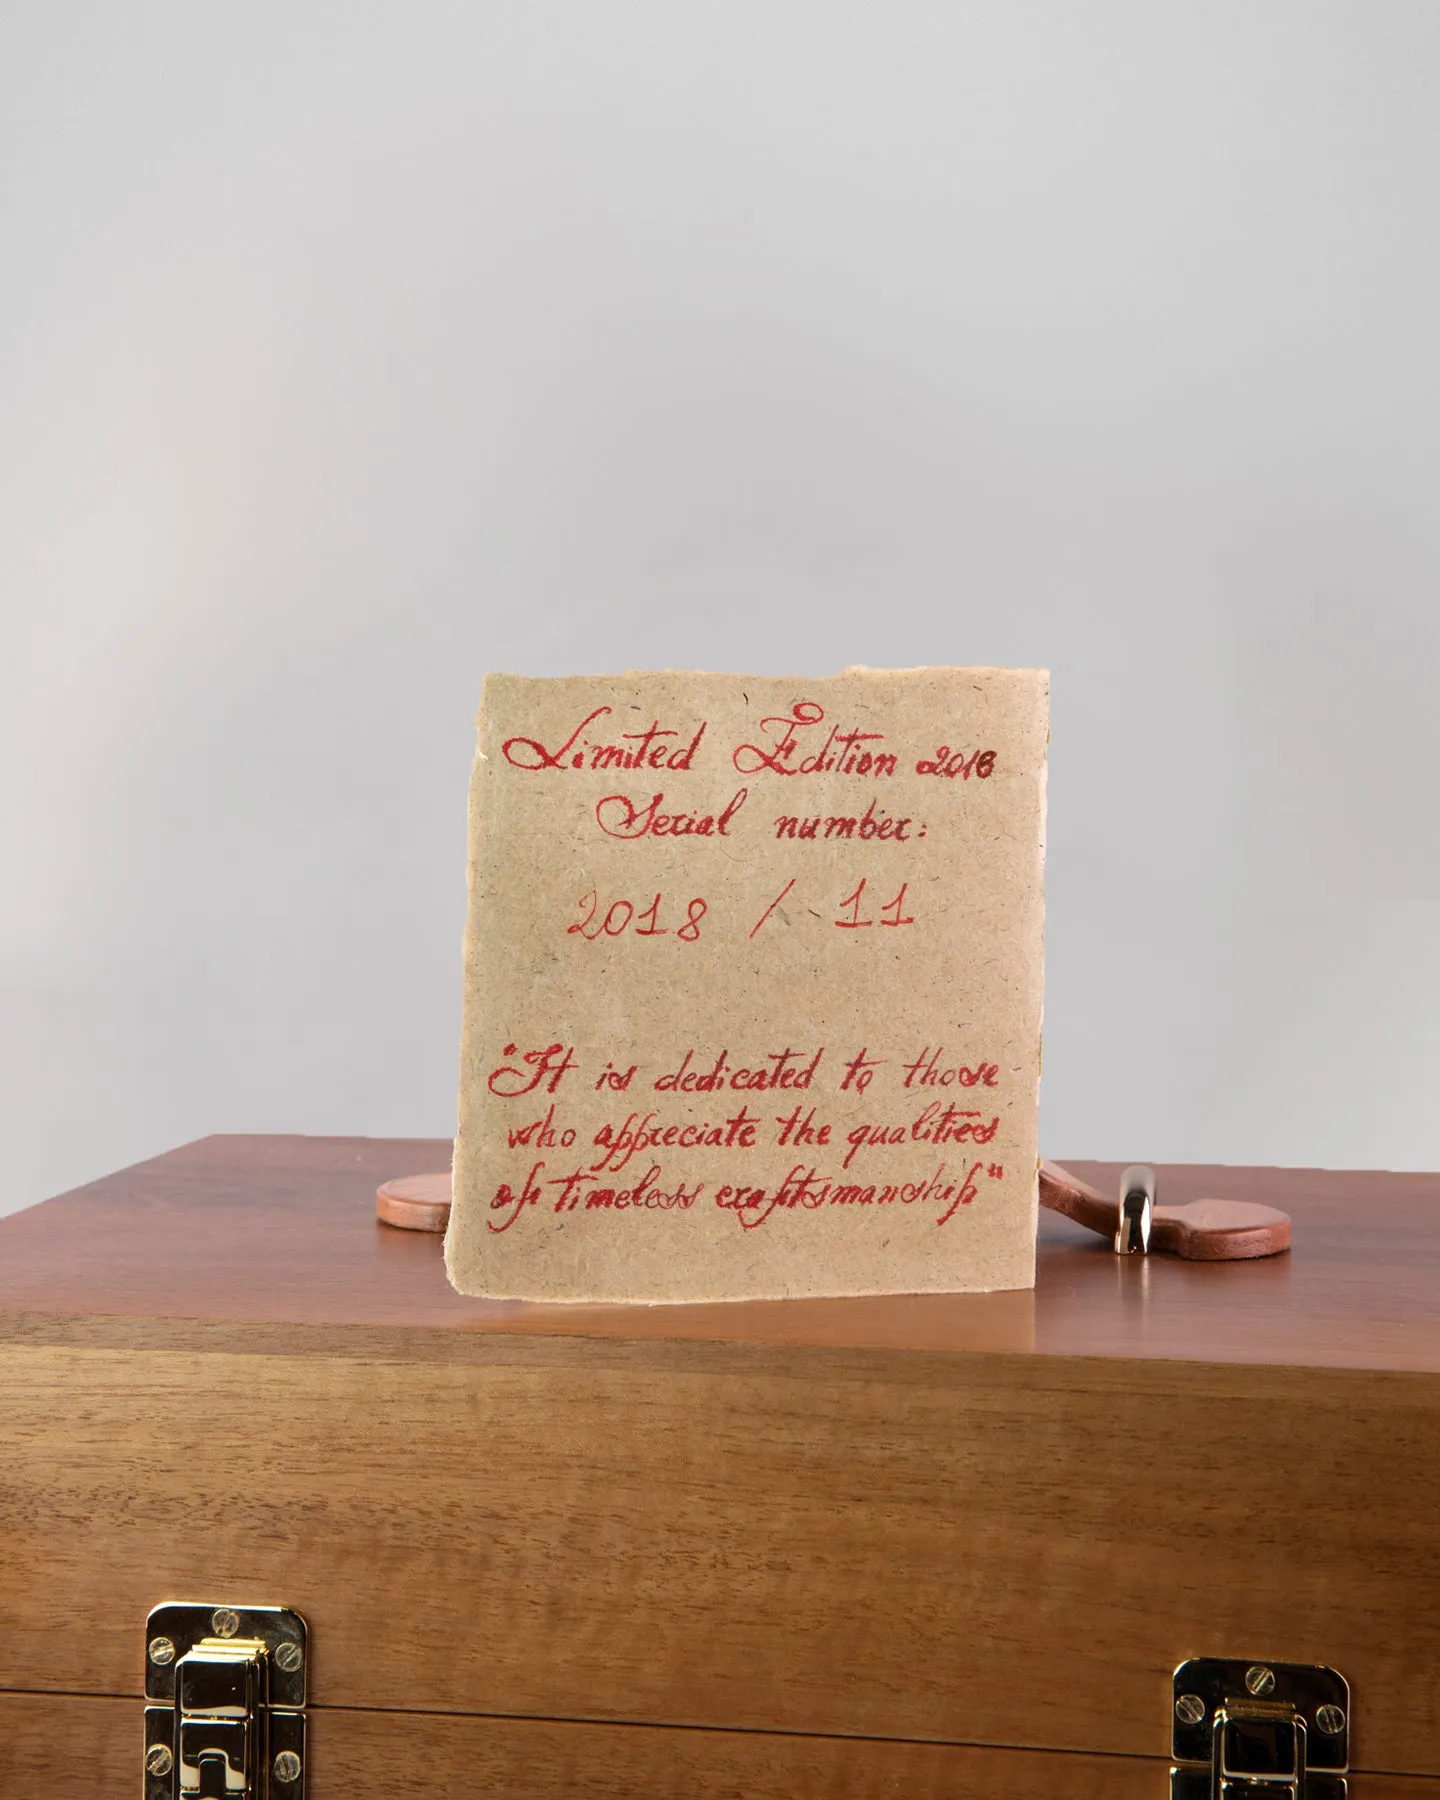 Limited Edition 2018
Serial number:
2018 / 11
"It is dedicated to those
who appreciate the qualities
of timeless craftsmanship"